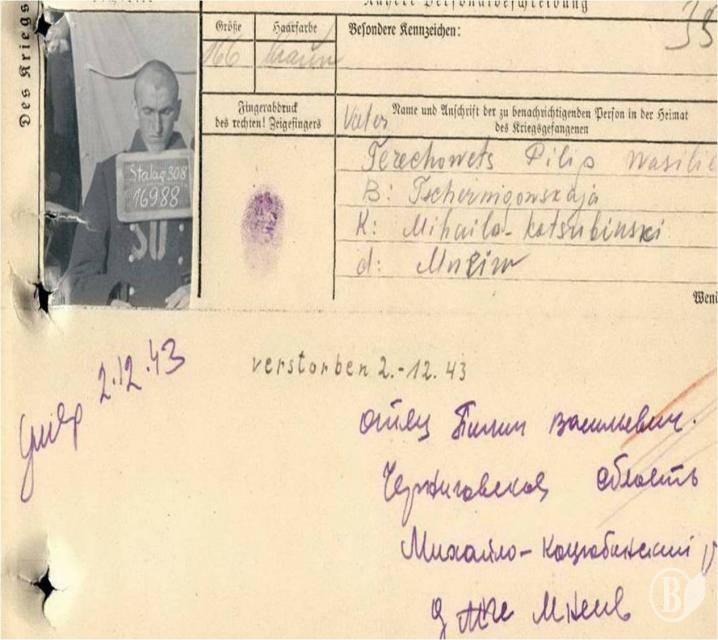 Des Kriegs
Nähere Personalbeschreibung
Größe
Haarfarbe
Besondere Kennzeichen:
166
braun
Fingerabdruck
des rechten! Zeigefingers
Name und Anschrift der zu benachrichtigenden Person in der Heimat
des Kriegsgefangenen
Vater
Terechowets Pilip Wasili
B: Tschernigowskaja
K: Mihailo-Kotsubinski
d:
Stalag 308
16988
SU
Weni
умер 2.12.43
verstorben 2.-12. 43
отец Пилип Васильевич.
Черниговская область
Михайло-Коцюбинский р
B